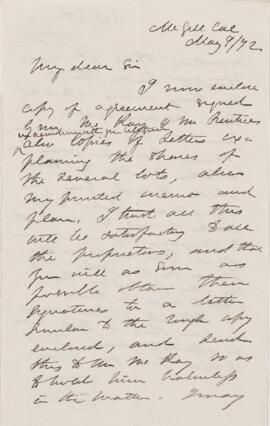 McGill Col
May 9/72
My dear Sir
I now enclose
copy of agreement signed
by Mr McKay & Mr Rintoul
also copies of letters ex-
plaining the shares of
the several lots, also
my printed memo and
plan. I trust all this
will be satisfactory to all
the proprietors, and that
you will as soon as
possible obtain their
signatures to a letter
similar to the rough copy
enclosed, and send
this to Mr McKay so as
to hold him harmless
in the matter. I may